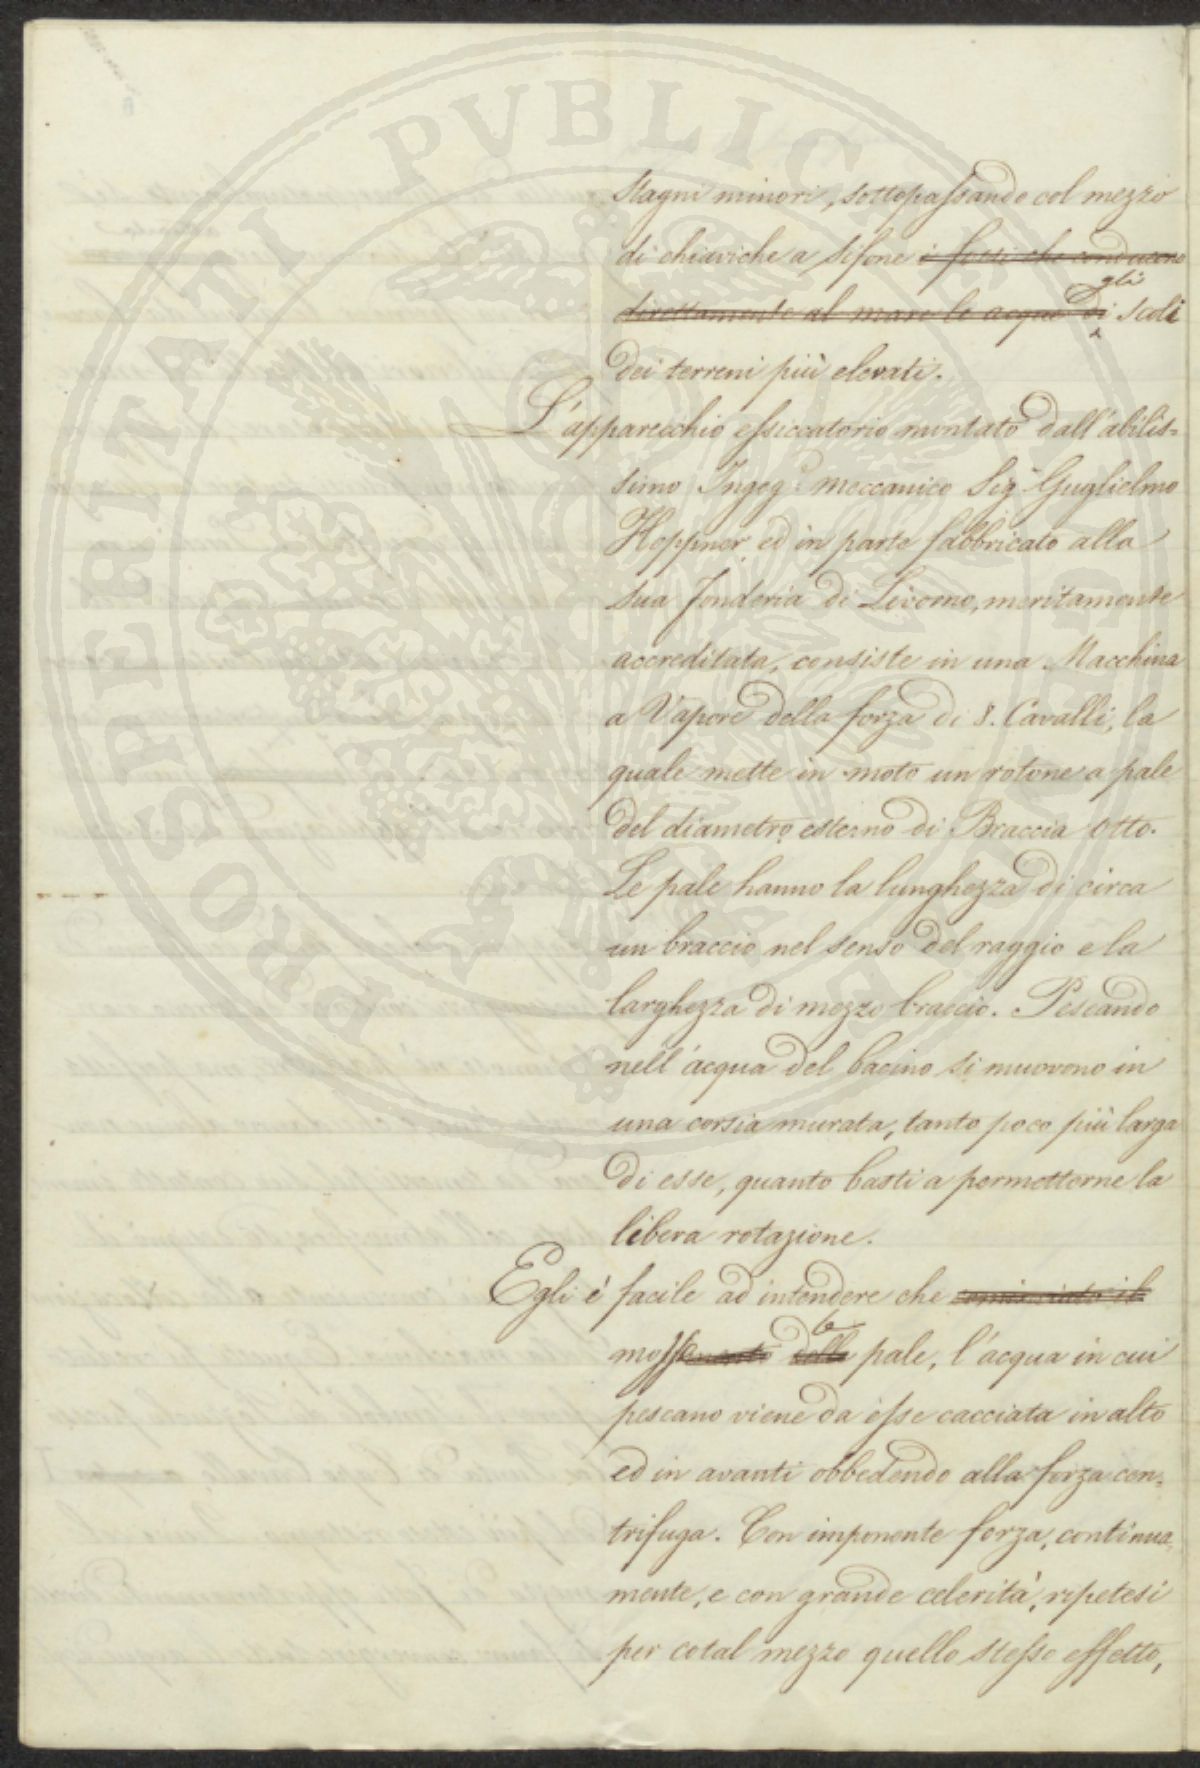 PROSPERITATI PVBLICAE AVGENDAE
stagni minori, sottopassando col mezzo
di chiaviche a sifone i fossi che conducono
gli
direttamente al mare le acque di scoli
dei terreni più elevati.
L'apparecchio essiccatorio montato dall'abilis-
simo Ingeg.e meccanico Sig.r Guglielmo
Hoppner ed in parte fabbricato alla
sua fonderia di Livorno, meritamente
accreditata, consiste in una Macchina
a Vapore della forza di 8. Cavalli, la
quale mette in moto un rotone a pale
del diametro esterno di Braccia otto.
Le pale hanno la lunghezza di circa
un braccio nel senso del raggio e la
larghezza di mezzo braccio. Pescando
nell'acqua del bacino si muovono in
una corsia murata, tanto poco più larga
di esse, quanto basti a permetterne la
libera rotazione.
Egli è facile ad intendere che cominciato il
le
mosse delle pale, l'acqua in cui
pescano viene da esse cacciata in alto
ed in avanti obbedendo alla forza cen-
trifuga. Con imponente forza, continua-
mente, e con grande celerità, ripetesi
per cotal mezzo quello stesso effetto,